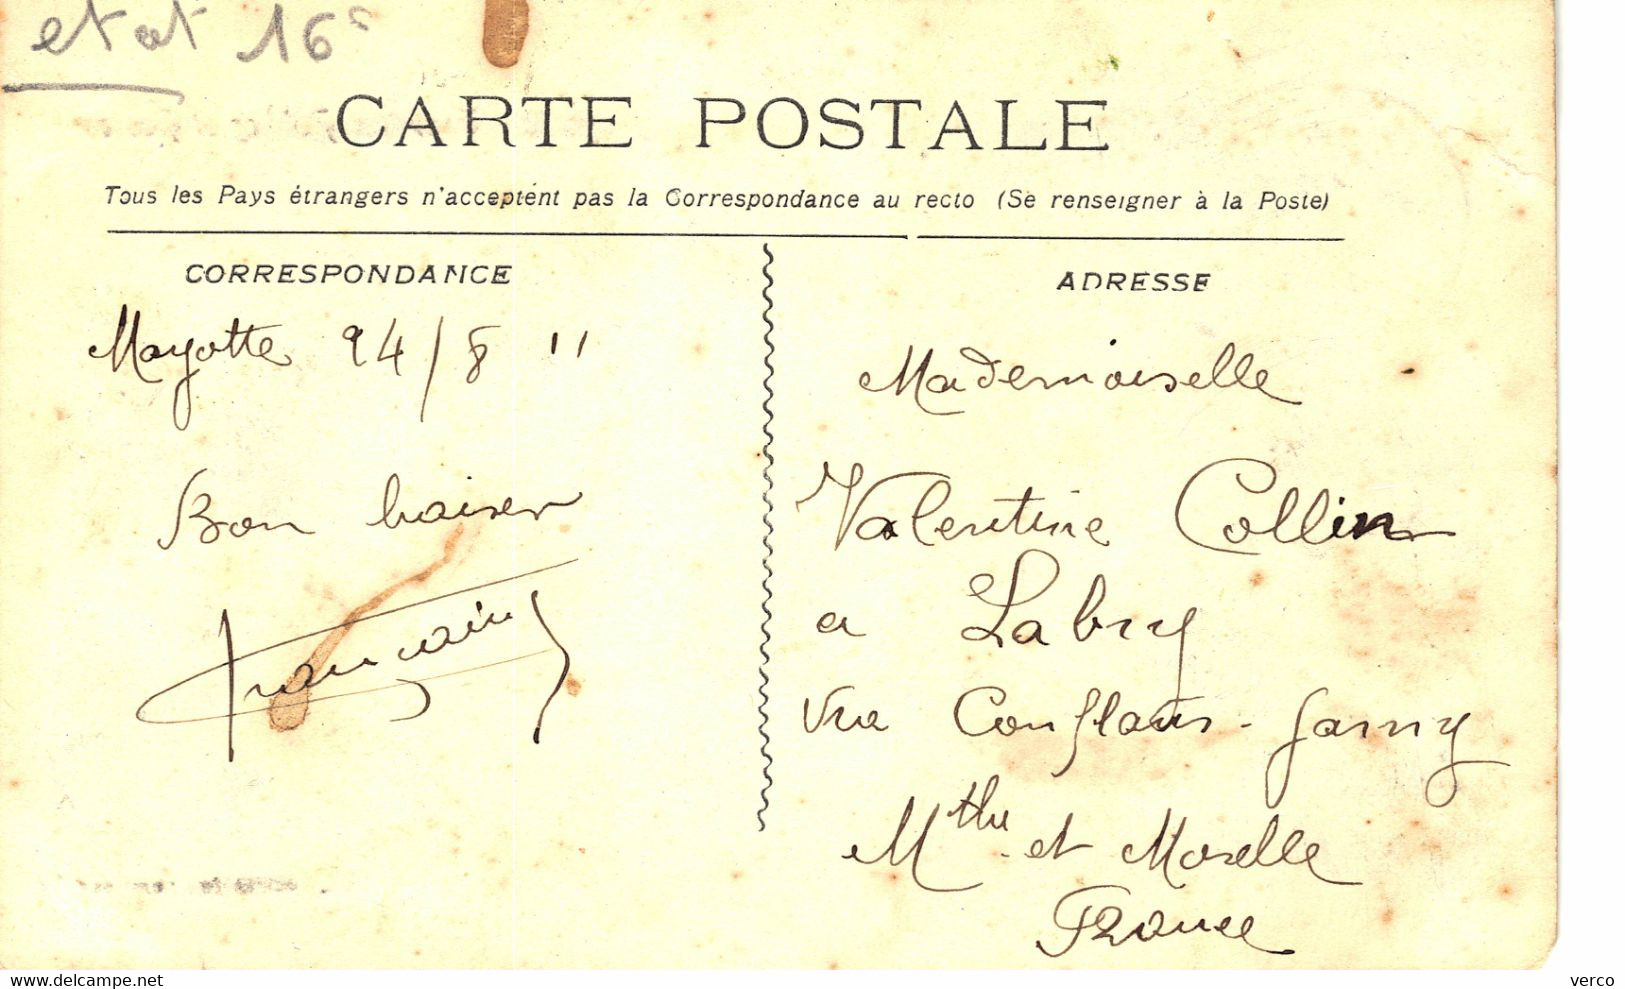 etat 16
CARTE POSTALE
Tous les Pays étrangers n'acceptent pas la Correspondance au recto (Se renseigner à la Poste)
CORRESPONDANCE
Mayotte 24/8 11
Bon baiser
ADRESSE
Mademoiselle
Valentine Collin
a Labry
via Conflans-Jarny
Mthe et Moselle
France
verco